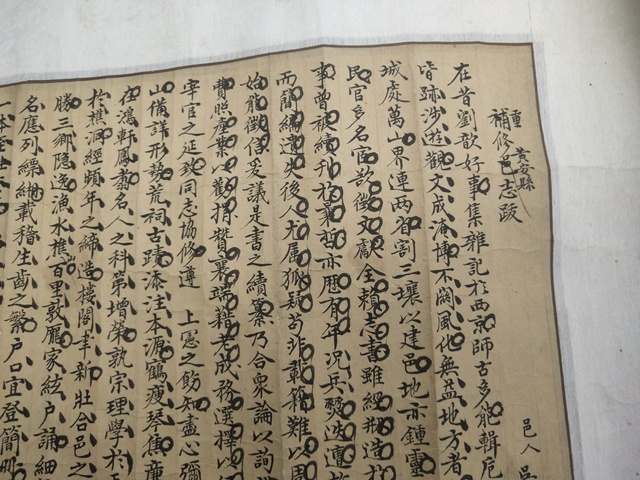 重補修黃安縣邑志跋
邑人吳
在昔劉歆好事集雜記於西京師古多能輯
皆跡涉遊觀文成淹博不關風化無益地方者
城處萬山界連兩省割三壤以建邑地亦鍾靈
民官多名宦欲徵文獻全賴志書雖經刱造於
事曾被續刊於
亦歷有年況兵燹迭遭
而簡編遺失後人尤屬狐疑苟非載籍難以周
始能徵信爰議是書之續纂乃合眾論以詢
費照產業以勸捐贊襄端藉老成務選擇以
宰官之延致同志協修遵上憲之飭知盡心彌
山備詳形勢荒祠古蹟添注本源鶴瘦琴焦
在鴻軒鳳翥名人之科第增榮孰宗理學於
於樵洞經頻年之締造樓閣聿新壯合邑之
勝三鄉隱逸漁水樵山百里敦龐家絃戶誦細
名應列縹緗載稽生齒之繁戶口宜登簡冊